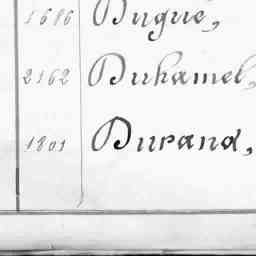 1686 Dugué,
2162 Duhamel,
1801 Durand,